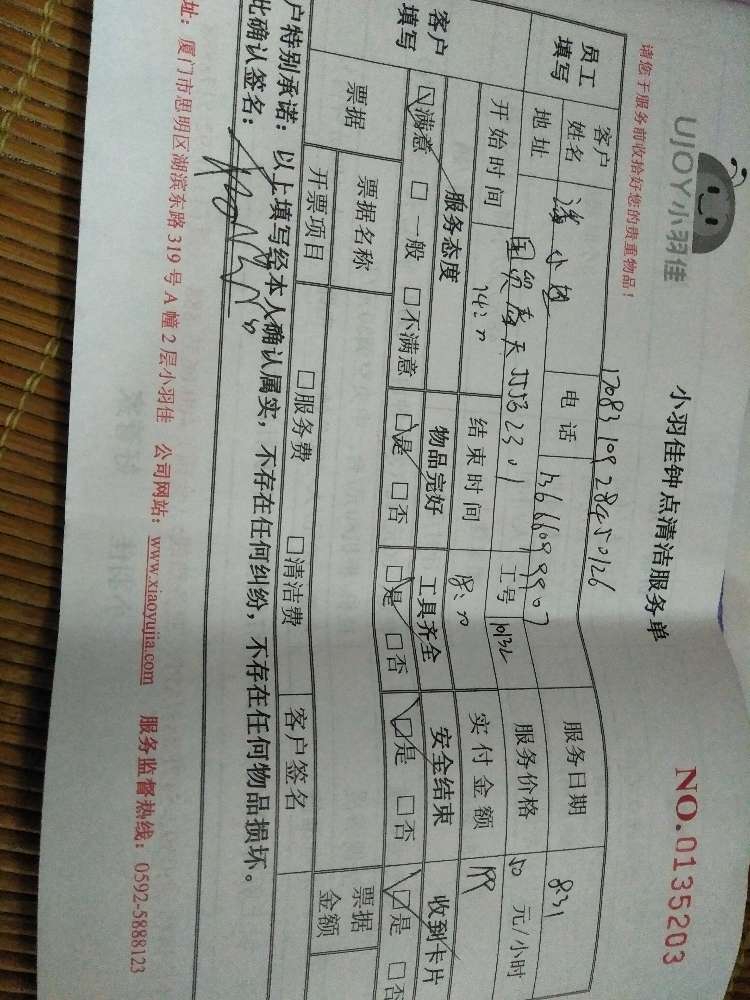 UJOY小羽佳
小羽佳钟点清洁服务单
NO.0135203
请您于服务前收拾好您的贵重物品！
员工填写
客户姓名 小 电话 服务日期 8.31
地址 2301 工号 服务价格 50 元/小时
开始时间 结束时间 实付金额
客户填写
服务态度 物品完好 工具齐全 安全结束 收到卡片
☑满意 □一般 □不满意 ☑是 □否 ☑是 □否 ☑是 □否 ☑是 □否
票据 票据名称 票据金额
开票项目 □服务费 □清洁费 客户签名
户特别承诺：以上填写经本人确认属实，不存在任何纠纷，不存在任何物品损坏。
此确认签名：
址：厦门市思明区湖滨东路 319 号 A 幢 2 层小羽佳 公司网站：www.xiaoyujia.com 服务监督热线：0592-5888123